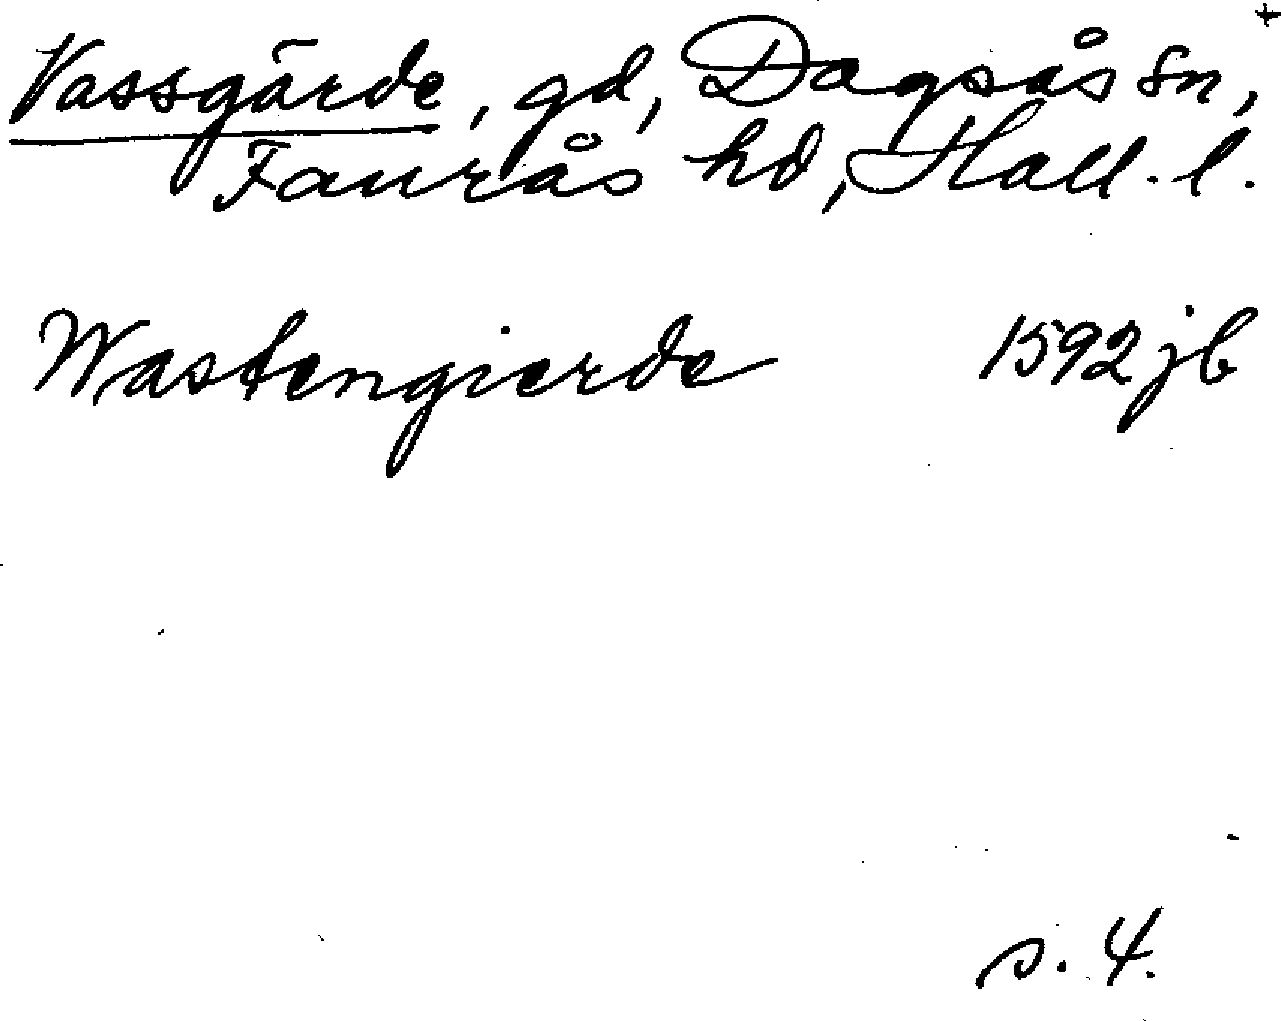 Vassgärde, gd, Dagsås sn, +
Faurås hd, Hall. l.
Wastengierde 1592 jb
s. 4.